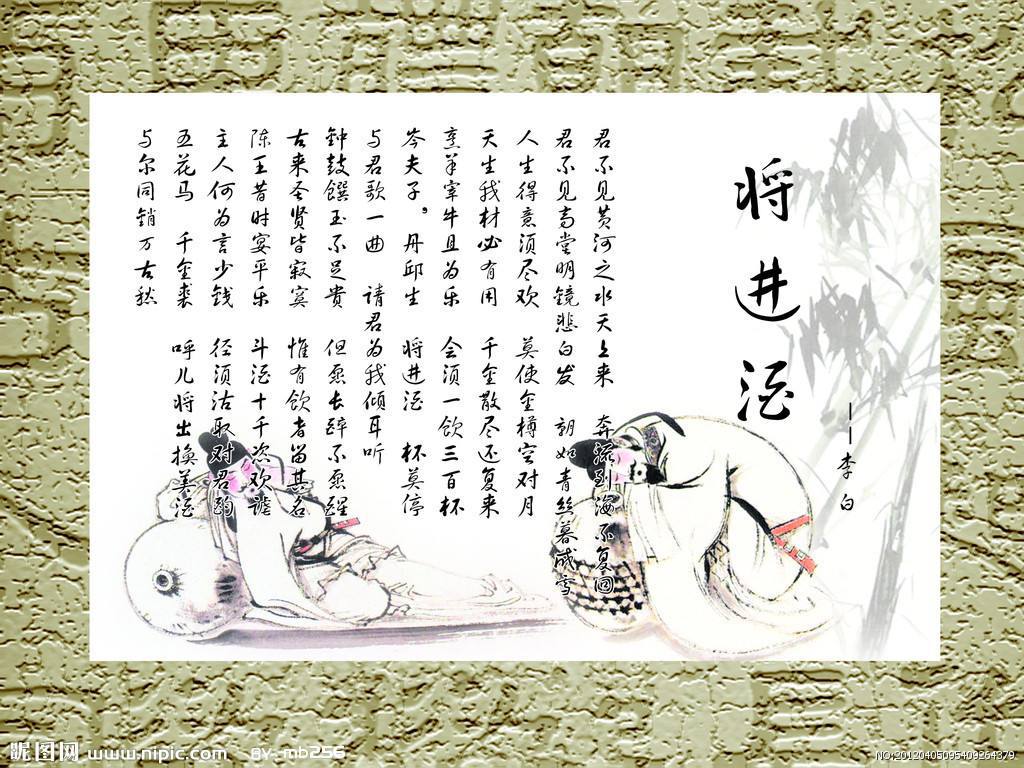 将进酒
——李白
君不见黄河之水天上来 奔流到海不复回
君不见高堂明镜悲白发 朝如青丝暮成雪
人生得意须尽欢 莫使金樽空对月
天生我材必有用 千金散尽还复来
烹羊宰牛且为乐 会须一饮三百杯
岑夫子，丹邱生 将进酒 杯莫停
与君歌一曲 请君为我倾耳听
钟鼓馔玉不足贵 但愿长醉不愿醒
古来圣贤皆寂寞 惟有饮者留其名
陈王昔时宴平乐 斗酒十千恣欢谑
主人何为言少钱 径须沽取对君酌
五花马 千金裘 呼儿将出换美酒
与尔同销万古愁
昵图网 www.nipic.com BY: mb256
NO:20120405095409264379